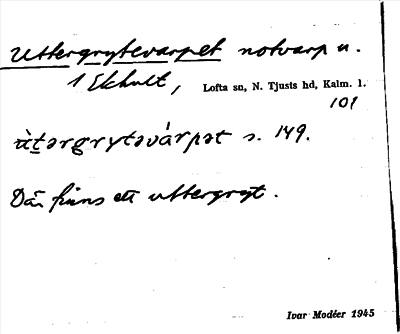 Uttergrytevarpet notvarp u.
1 Ekhult, Lofta sn, N. Tjusts hd, Kalm. l.
101
ùtərgrytəvárpət s. 149.
Där finns ett uttergryt.
Ivar Modéer 1945